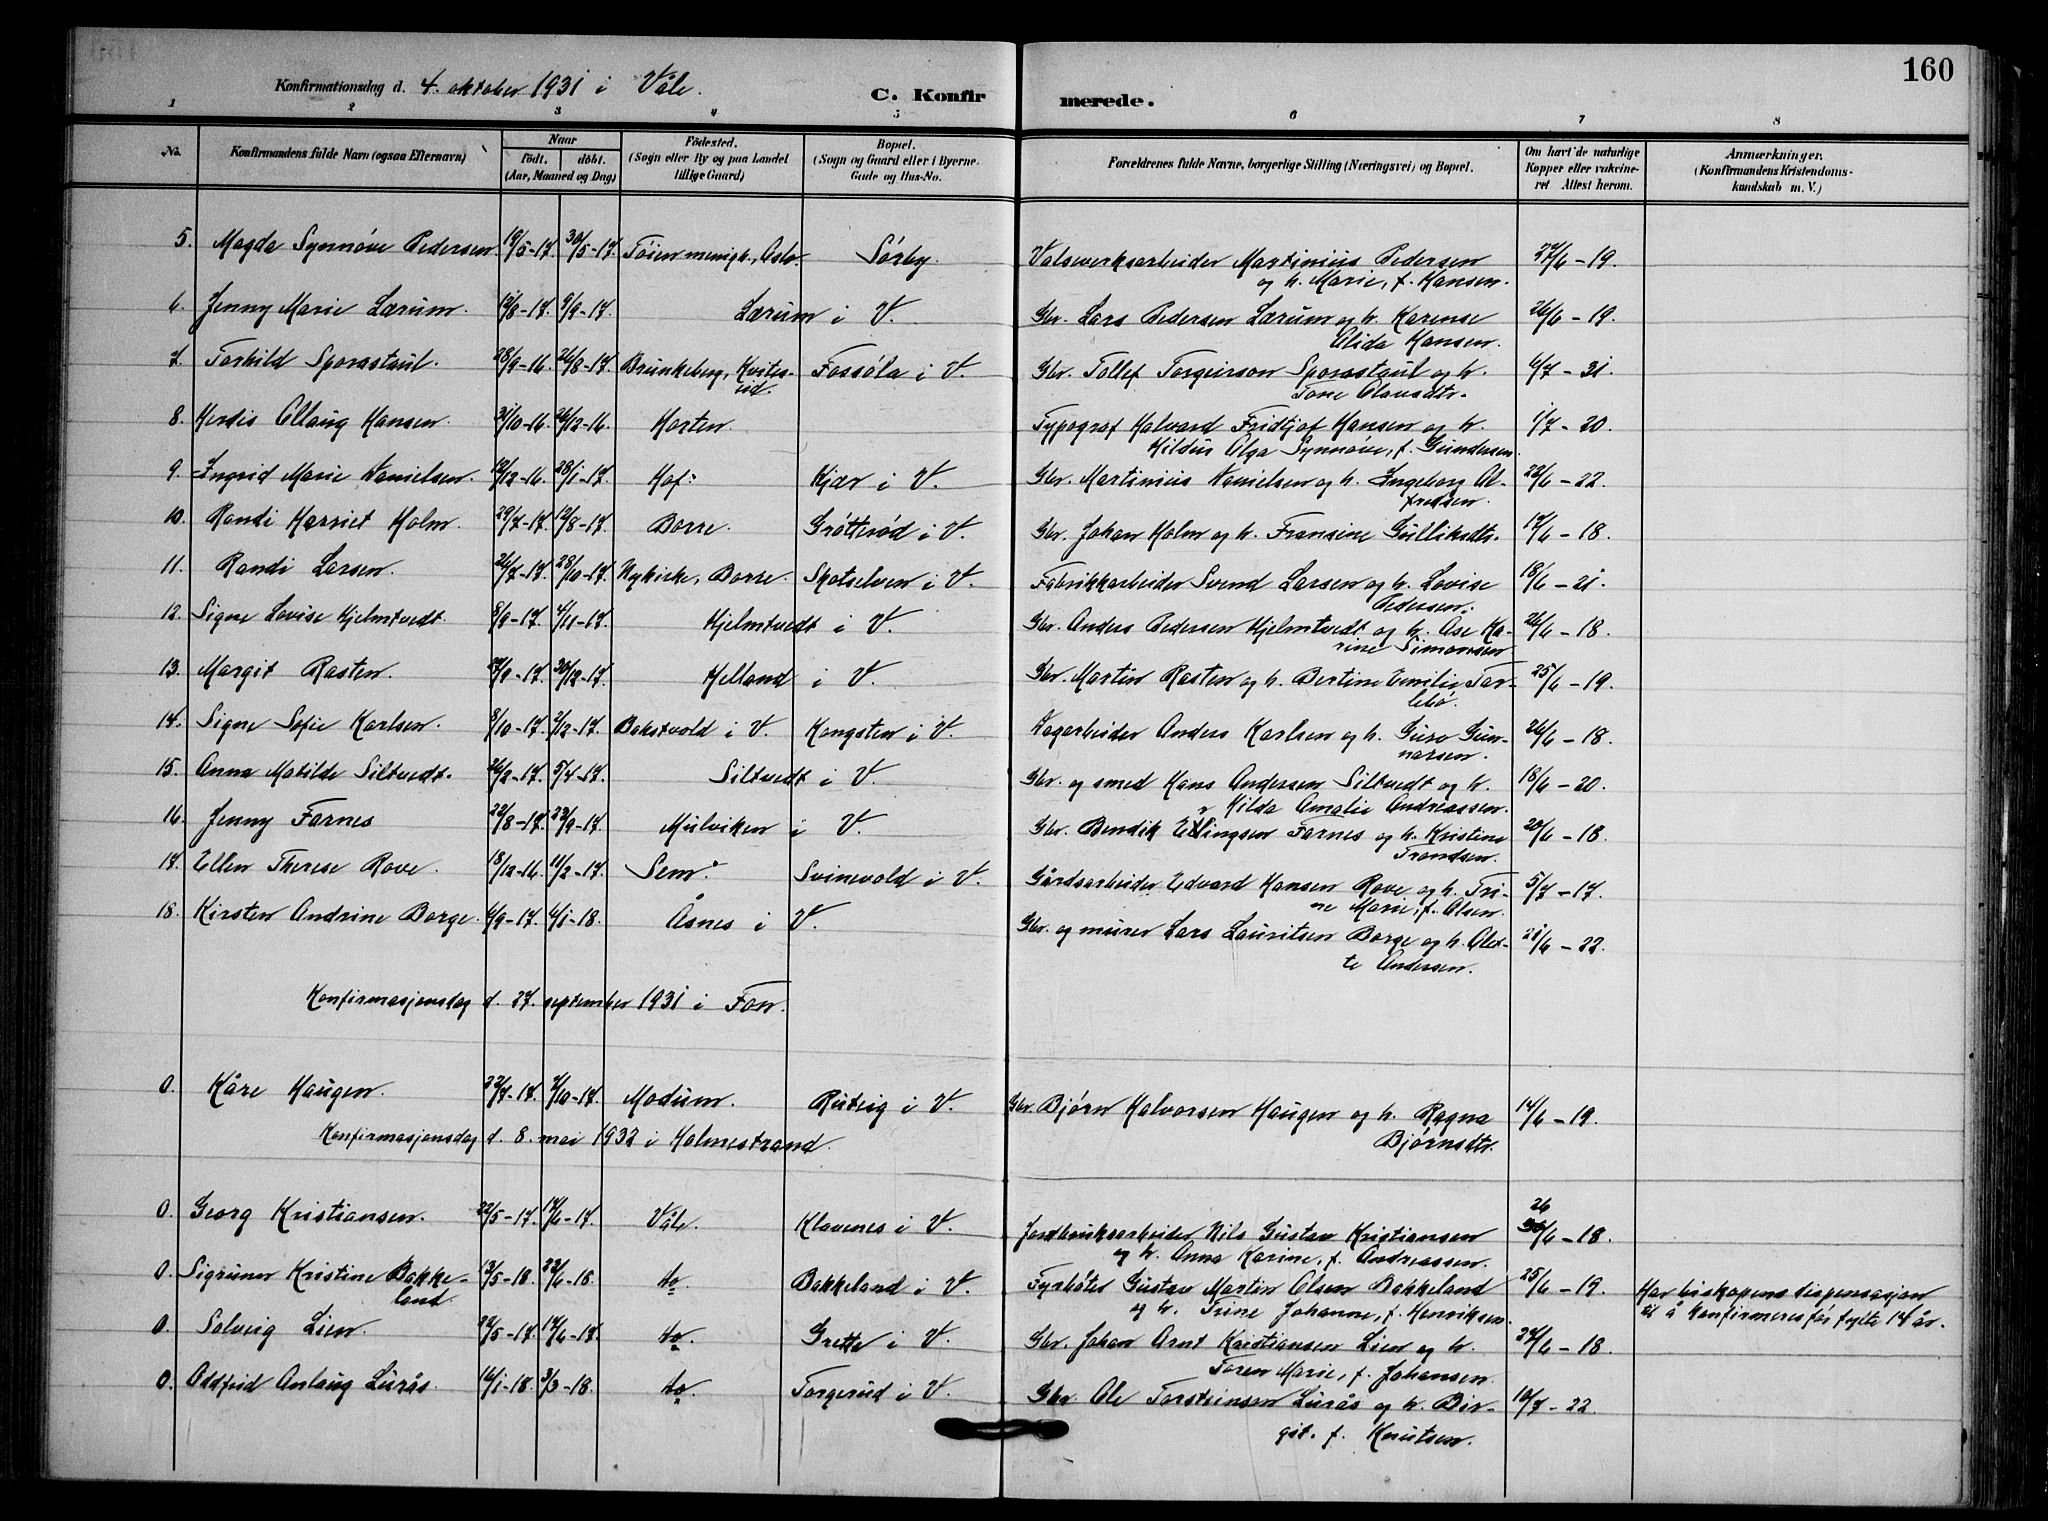 160
Konfirmationsdag d. 4. oktober 1931 i Våle.
C. Konfirmerede.
1 2 3 4 5 6 7 8
No. Konfirmandens fulde Navn (ogsaa Efternavn) Naar födt. döbt. (Aar, Maaned og Dag) Födested. (Sogn eller By og paa Landet tillige Gaard) Bopæl. (Sogn og Gaard eller i Byerne Gade og Hus-No. Forældrenes fulde Navne, borgerlige Stilling (Næringsvei) og Bopæl. Om havt de naturlige Kopper eller vakcineret Attest herom. Anmærkninger. (Konfirmandens Kristendomskundskab m. V.)
5. Magda Synnøve Pedersen 19/5-17. 30/5-17. Tøien menigh., Oslo. Sørby. Valseverksarbeider Martinius Pedersen 27/6-19.
og h. Marie, f. Hansen.
6. Jenny Marie Lærum. 12/8-17. 9/9-17. Lærum i V. Gbr. Lars Pedersen Lærum og h. Karense 26/6-19.
Alida Hansen.
7. Torhild Sporastaul. 28/9-16. 26/8-17. Brunkeberg, Kviteseid. Fossøla i V. Gbr. Tollef Torgeirson Sporastaul og h. 6/7-21.
Tone Olavsdtr.
8. Herdis Ollaug Hansen. 31/10-16. 26/12-16. Horten Typograf Halvard Fridtjof Hansen og h. 1/7-20.
Hildur Olga Synnøve, f. Gundersen.
9. Ingrid Marie Danielsen. 12/12-16. 28/1-17. Hof. Kjær i V. Gbr. Martinius Danielsen og h. Ingeborg Al- 22/6-22.
fredsen.
10. Randi Harriet Holm. 29/7-17. 12/8-17. Borre. Grøtterød i V. Gbr. Johan Holm og h. Fransine Gulliksdtr. 17/6-18.
11. Randi Larsen. 26/7-17. 28/10-17. Nykirke, Borre. Skotselven i V. Fabrikkarbeider Svend Larsen og h. Lovise 18/6-21.
Pedersen.
12. Signe Lovise Hjelmtvedt. 8/9-17. 4/11-17. Hjelmtvedt i V. Gbr. Anders Pedersen Hjelmtvedt og h. Ase Ka- 26/6-18.
rine Simonsen
13. Margit Rasten. 27/9-17. 30/12-17. Helland i V. Gbr. Martin Rasten og h. Bertine Emilie Tor- 25/6-19.
lebø.
14. Signe Sofie Karlsen. 8/10-17. 2/12-17. Bakstvold i V. Hangsten i V. Dagarbeider Anders Karlsen og h. Guro Gun- 26/6-18.
narsen.
15. Anna Matilde Siltvedt. 26/2-17. 5/4-17. Siltvedt i V. Gbr. og smed Hans Andersen Siltvedt og h. 18/6-20.
Hilda Amalie Andreassen.
16. Jenny Farnes 22/8-17. 23/9-17. Mulviken i V. Gbr. Bendik Ellingsen Farnes og h. Kristine 20/6-18.
Trondsen.
17. Ellen Therese Rove. 18/12-16. 11/2-17. Sem. Svinevold i V. Gårdsarbeider Edvard Hansen Rove og h. Tri- 5/7-17.
ne Marie, f. Olsen.
18. Kirsten Andrine Borge. 6/9-17. 6/1-18. Åsnes i V. Gbr. og murer Lars Lauritsen Borge og h. Olet- 21/6-22.
te Andersen.
Konfirmasjonsdag d. 27. september 1931 i Fon.
0. Kåre Haugen. 22/7-17. 7/10-17. Modum. Rutvig i V. Gbr. Bjørn Halvorsen Haugen og h. Ragna 14/6-19.
Bjørnsdtr.
Konfirmasjonsdag d. 8. mai 1932 i Holmestrand.
0. Georg Kristiansen. 22/5-17. 17/6-17. Våle. Klavenes i V. Jordbruksarbeider Nils Gustav Kristiansen 26/6-18.
og h. Anna Karine, f. Andreassen.
0. Sigrunn Kristine Bakke- 13/5-18. 23/6-18. do Bakkeland i V. Fyrbøter Gustav Martin Olsen Bakkeland 25/6-19. Har biskopens dispensasjon
land. og h. Trine Johanne, f. Henriksen. til å konfirmeres før fylte 14 år.
0. Solveig Lien. 24/5-17. 17/6-17. do. Grette i V. Gbr. Johan Arnt Kristiansen Lien og h. 24/6-18.
Toren Marie, f. Johansen.
0. Oddfrid Anlaug Lurås. 16/1-18. 3/3-18. do Torgerud i V. Gbr. Ole Torsteinsen Lurås og h. Bir- 10/7-22.
git. f. Knutsen.